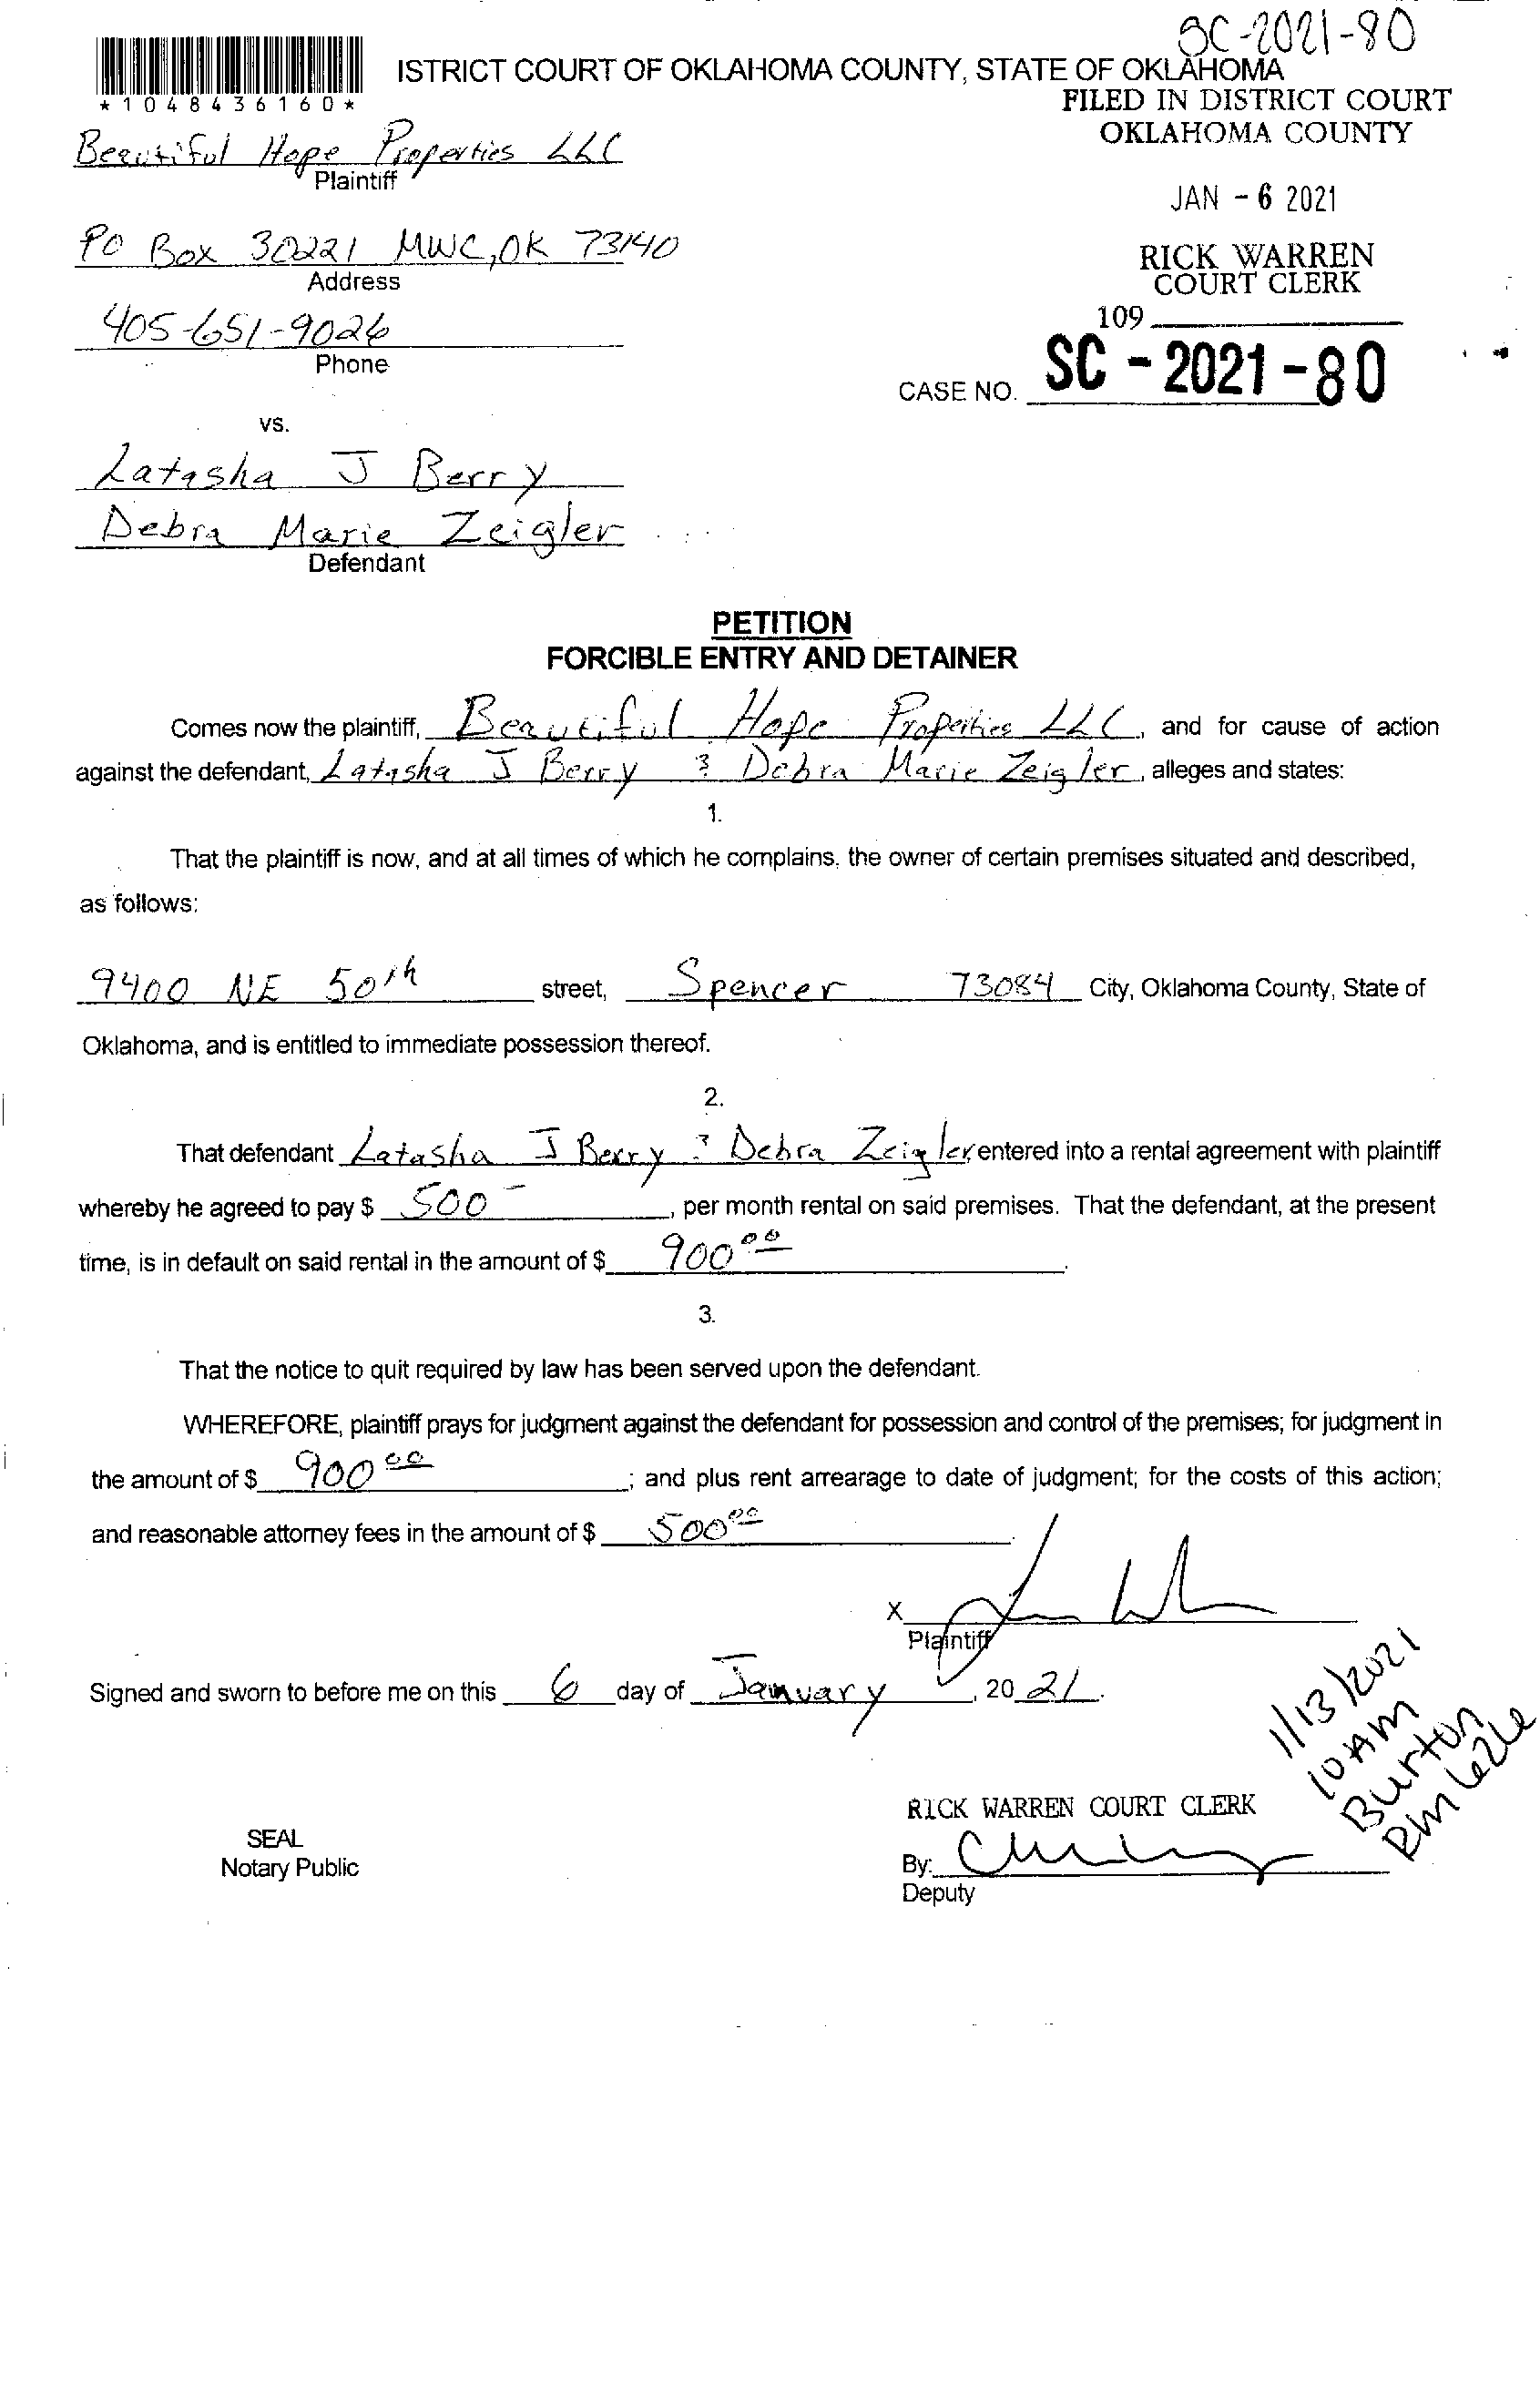 SC-2021-80
ISTRICT COURT OF OKLAHOMA COUNTY, STATE OF OKLAHOMA
*1048436160*
FILED IN DISTRICT COURT
OKLAHOMA COUNTY
Beautiful Hope Properties LLC
Plaintiff
JAN - 6 2021
PO Box 30221 MWC, OK 73140
Address
RICK WARREN
COURT CLERK
405-651-9026
Phone
109
CASE NO. SC - 2021 - 80
vs.
Latasha J Berry
Debra Marie Zeigler
Defendant
PETITION
FORCIBLE ENTRY AND DETAINER
Comes now the plaintiff, Beautiful Hope Properties LLC, and for cause of action
against the defendant, Latasha J Berry & Debra Marie Zeigler, alleges and states:
1.
That the plaintiff is now, and at all times of which he complains, the owner of certain premises situated and described,
as follows:
9400 NE 50th street, Spencer 73084 City, Oklahoma County, State of
Oklahoma, and is entitled to immediate possession thereof.
2.
That defendant Latasha J Berry & Debra Zeigler, entered into a rental agreement with plaintiff
whereby he agreed to pay $ 500 -, per month rental on said premises. That the defendant, at the present
time, is in default on said rental in the amount of $ 900 00.
3.
That the notice to quit required by law has been served upon the defendant.
WHEREFORE, plaintiff prays for judgment against the defendant for possession and control of the premises; for judgment in
the amount of $ 900 00; and plus rent arrearage to date of judgment; for the costs of this action;
and reasonable attorney fees in the amount of $ 500 00.
X
Plaintiff
Signed and sworn to before me on this 6 day of January, 20 21.
1/13/2021
10 AM
Burton
RM 626
RICK WARREN COURT CLERK
SEAL
Notary Public
By:
Deputy